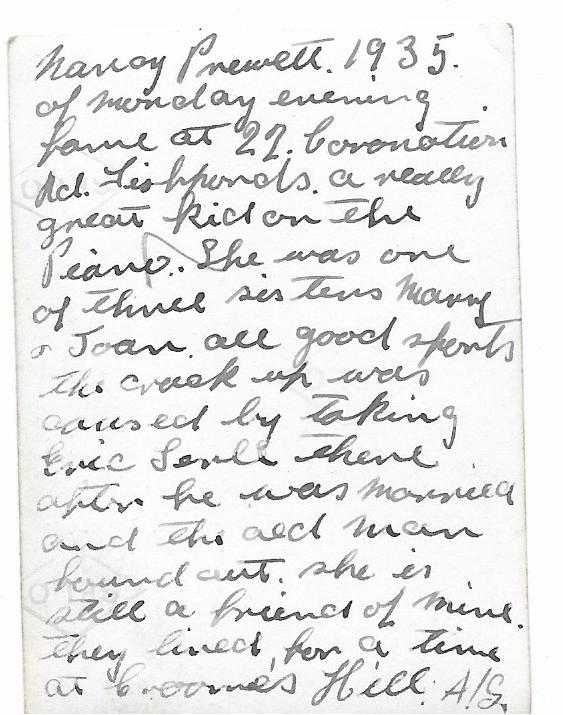 Nancy Prewett. 1935.
of Monday evening
fame at 22. Coronation
Rd. Fishponds. a really
great kid on the
Piano. She was one
of three sisters Marry
& Joan. all good sports
the crack up was
caused by taking
Eric Serle there
after he was married
and the old man
found out. she is
still a friend of mine.
they lived, for a time
at Croomes Hill. A/G.